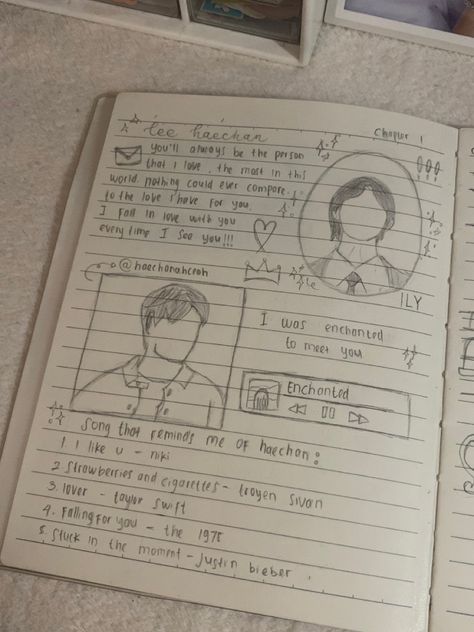 lee haechan
Chapter 1
you'll always be the person
that I love, the most in this
world. nothing could ever compare.
to the love I have for you
I fall in love with you
every time I see you!!!
@haechanahceah
ILY
I was enchanted
to meet you
Enchanted
Song that reminds me of haechan:
1. I like u - niki
2. strawberries and cigarettes - troyen sivan
3. lover - taylor swift
4. Falling for you - the 1975
5. stuck in the moment - justin bieber.